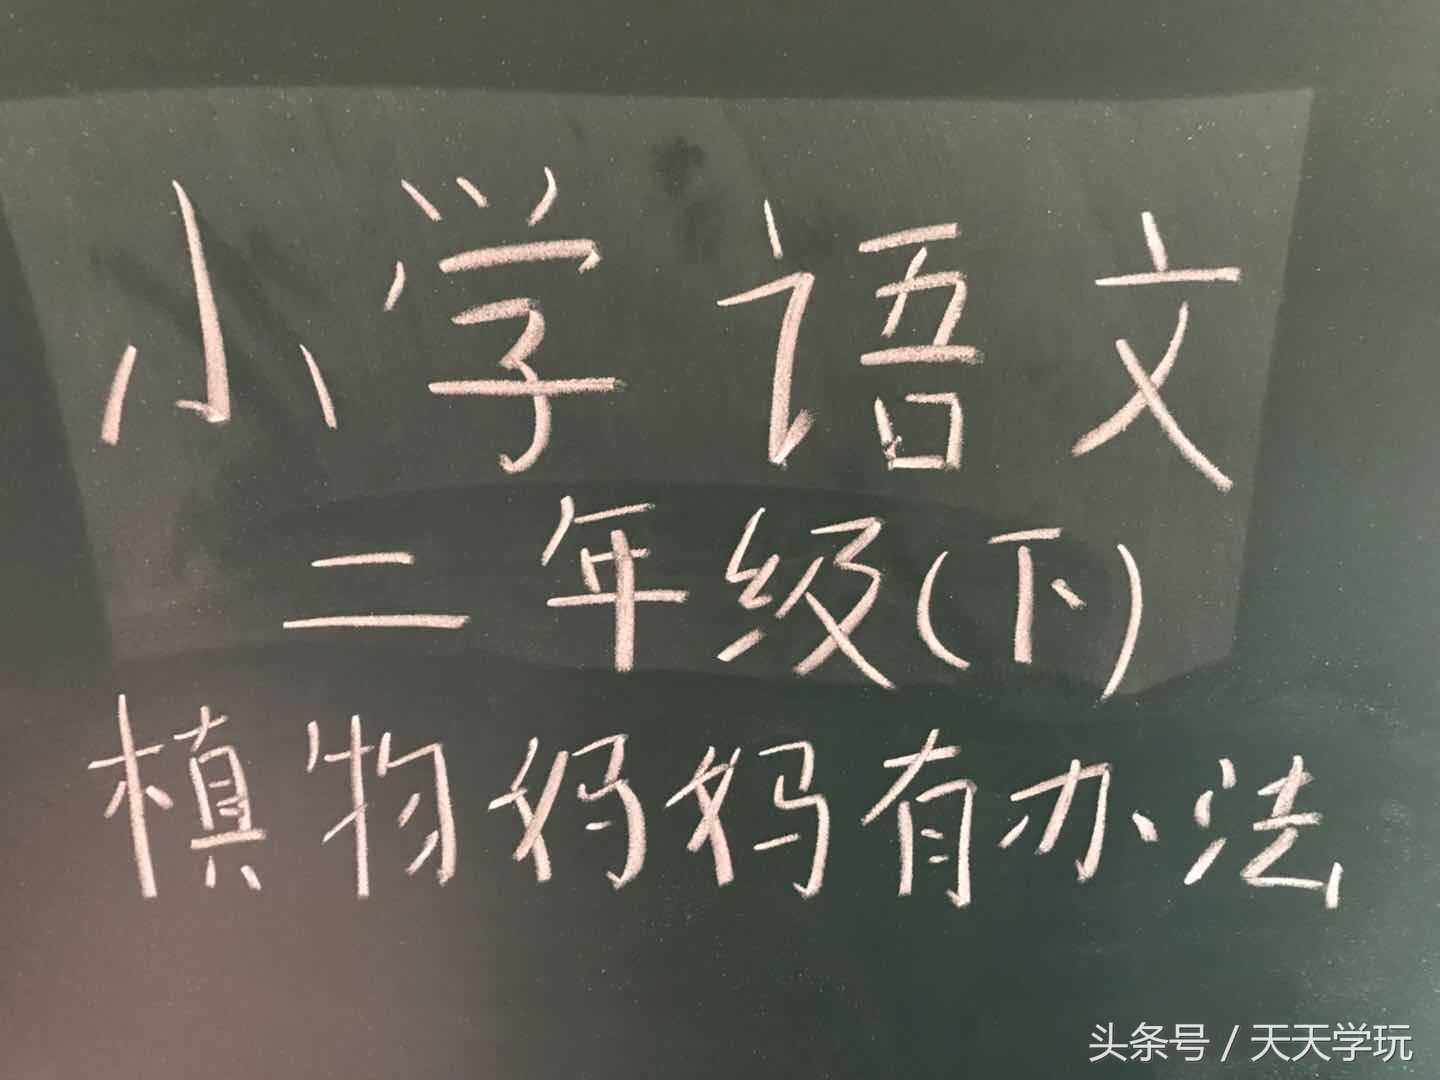 小学语文
二年级(下)
植物妈妈有办法
头条号 / 天天学玩